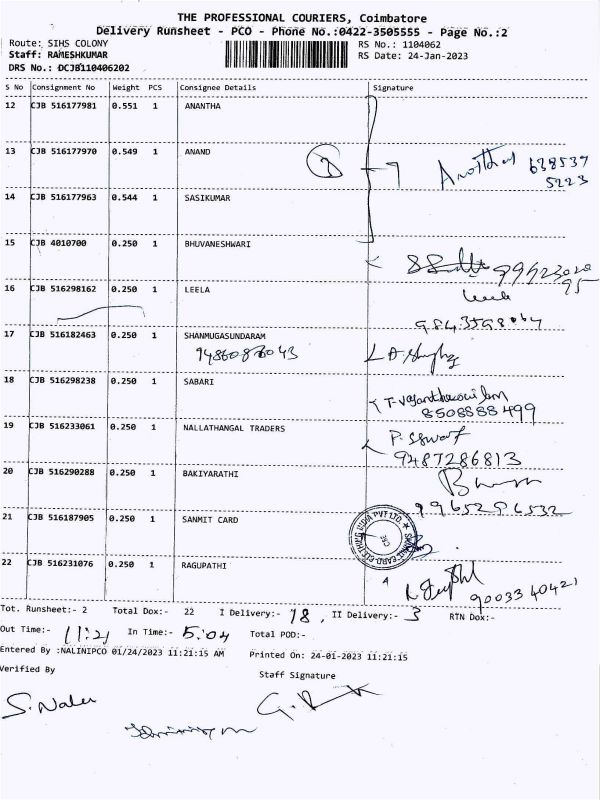 THE PROFESSIONAL COURIERS, Coimbatore
Delivery Runsheet - PCO - Phone No.:0422-3505555 - Page No.:2
Route: SIHS COLONY
RS No.: 1104062
Staff: RAMESHKUMAR
RS Date: 24-Jan-2023
DRS No.: DCJB110406202
S No Consignment No Weight PCS Consignee Details Signature
12 CJB 516177981 0.551 1 ANANTHA
13 CJB 516177970 0.549 1 ANAND
638537
5223
14 CJB 516177963 0.544 1 SASIKUMAR
15 CJB 4010700 0.250 1 BHUVANESHWARI
16 CJB 516298162 0.250 1 LEELA
17 CJB 516182463 0.250 1 SHANMUGASUNDARAM
18 CJB 516298238 0.250 1 SABARI
8508888499
19 CJB 516233061 0.250 1 NALLATHANGAL TRADERS
9487286813
20 CJB 516290288 0.250 1 BAKIYARATHI
9965296532
21 CJB 516187905 0.250 1 SANMIT CARD
22 CJB 516231076 0.250 1 RAGUPATHI
9003340421
Tot. Runsheet:- 2 Total Dox:- 22 I Delivery:- 18, II Delivery:- 3 RTN Dox:-
Out Time:- 11:21 In Time:- 5:04 Total POD:-
Entered By :NALINIPCO 01/24/2023 11:21:15 AM Printed On: 24-01-2023 11:21:15
Verified By
Staff Signature